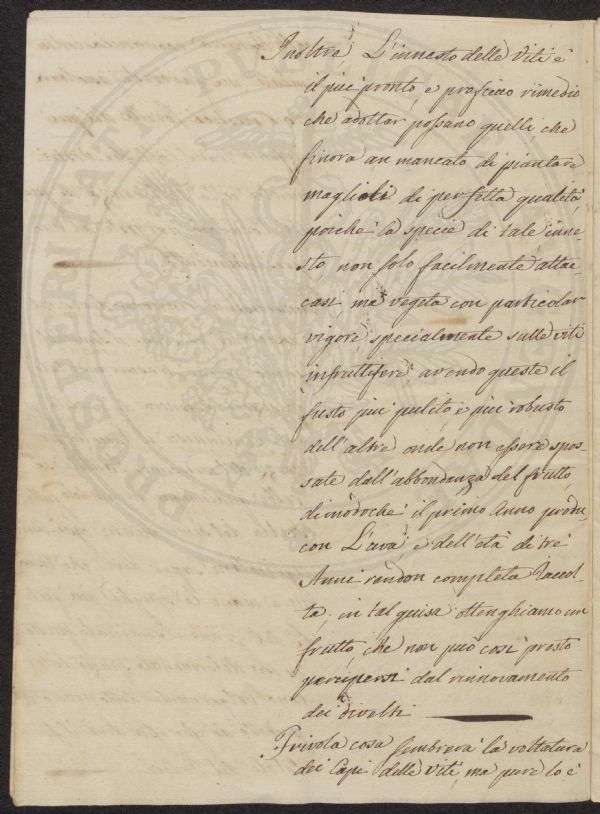 Inoltre, L'innesto delle Viti è
il più pronto, e proficuo rimedio
che adottar possano quelli, che
finora an mancato di piantare
maglioli di perfetta qualità,
poichè la specie di tale inne-
sto non solo facilmente attac-
casi, ma vegeta con particolar
vigore specialmente sulle viti
infruttifere avendo queste il
fusto più pulito, e più robusto
dell'altre onde non essere spos-
sate dall'abbondanza del frutto,
dimodochè il primo Anno produ-
con L'uva, e dell'età di tre
Anni rendon completa Raccol-
ta; in tal guisa ottenghiamo un
frutto, che non può così presto
percipersi dal rinnovamento
dei divelti
Frivola cosa sembrerà la voltatura
dei Capi delle Viti, ma pure lo è